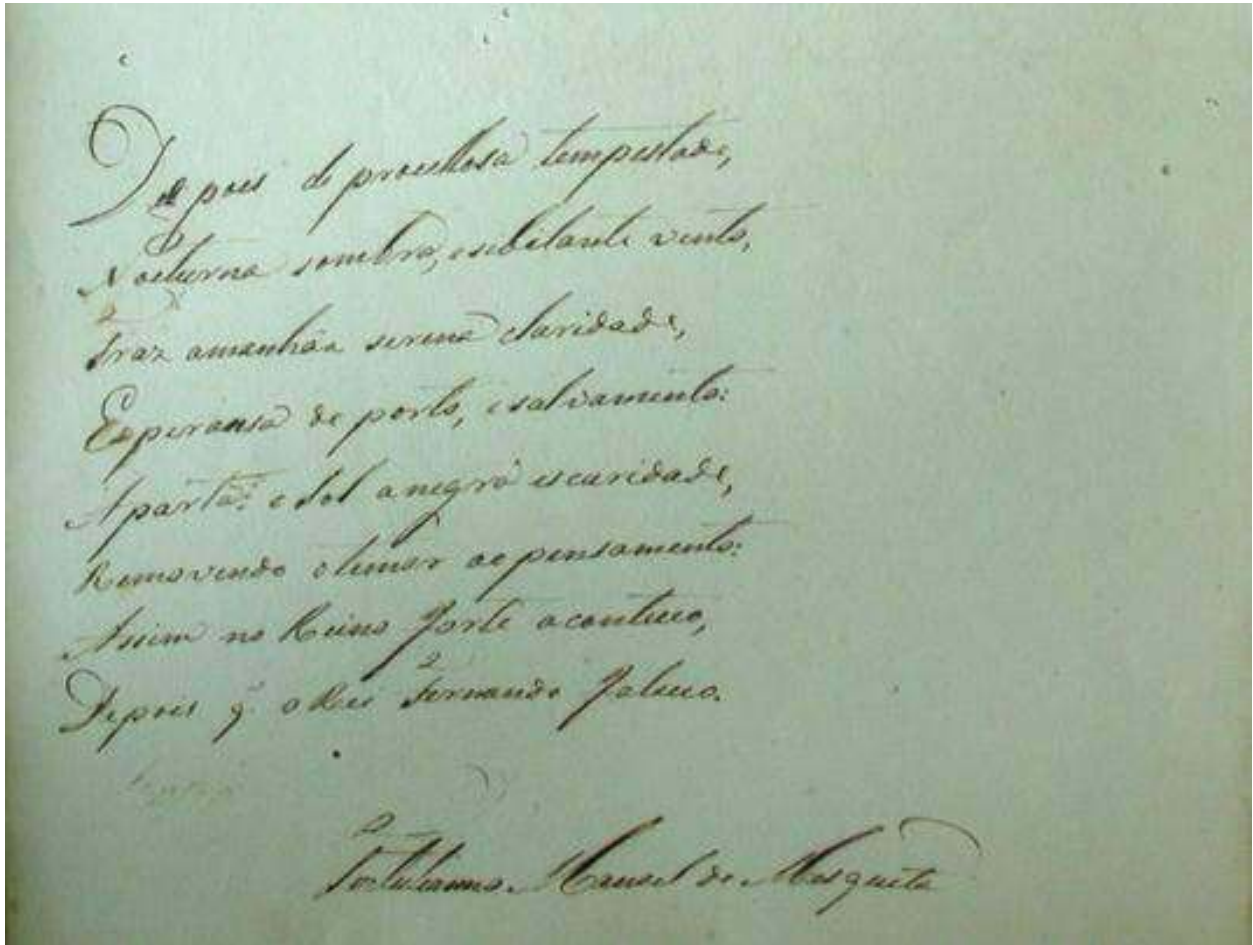 Depois de procellosa tempestade,
Nocturna sombra, esibilante vento,
Traz amanhãa serena claridade,
Esperansa de porto, esalvamento:
Aparta o Sol a negra escuridade,
Removendo otemor ao pensamento:
Assim no Reino forte aconteceo,
Depois q̃ oRei Fernando faleceo.
Manoel de Mesquita